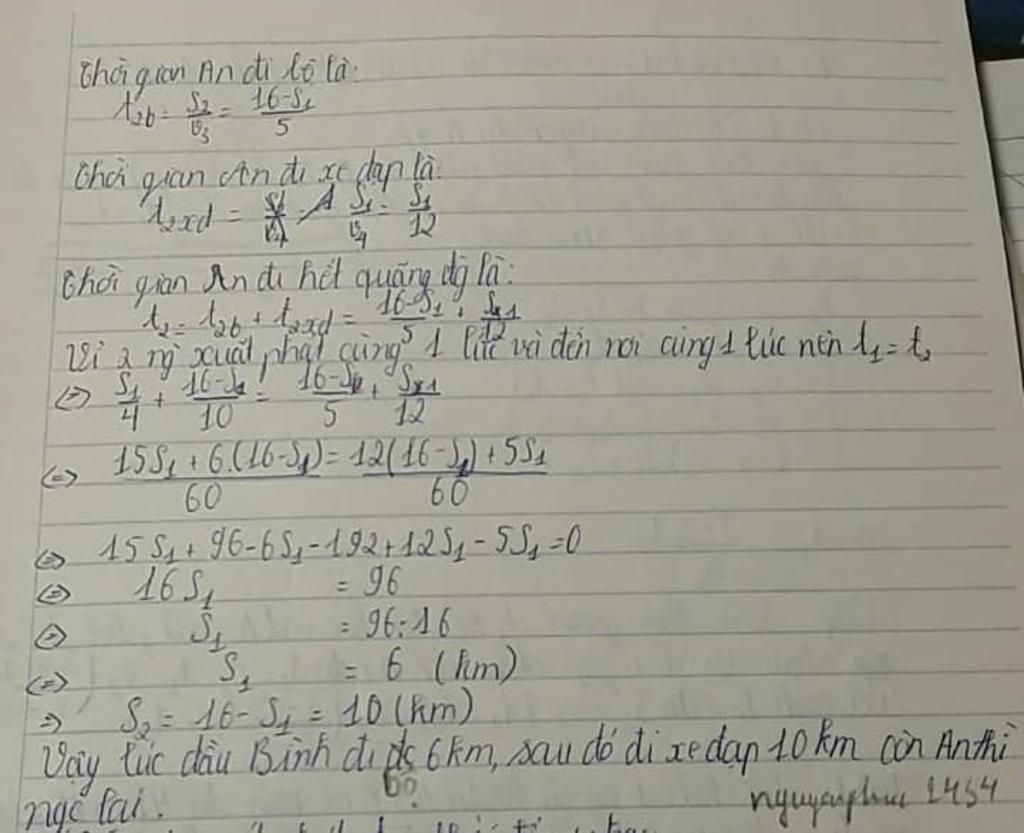 Thời gian An đi bộ là:
t₂b = S₂/v₃ = (16-S₁)/5
Thời gian An đi xe đạp là:
t₂xd = S₁/v₄ = S₁/12
Thời gian An đi hết quãng đg là:
t₂ = t₂b + t₂xd = (16-S₁)/5 + S₁/12
Vì 2 ng xuất phát cùng 1 lúc và đến nơi cùng 1 lúc nên t₁ = t₂
<=> S₁/4 + (16-S₁)/10 = (16-S₁)/5 + S₁/12
<=> (15S₁ + 6.(16-S₁))/60 = (12(16-S₁) + 5S₁)/60
<=> 15S₁ + 96 - 6S₁ - 192 + 12S₁ - 5S₁ = 0
<=> 16S₁ = 96
<=> S₁ = 96:16
<=> S₁ = 6 (km)
=> S₂ = 16 - S₁ = 10 (km)
Vậy lúc đầu Bình đi bộ 6km, sau đó đi xe đạp 10km còn An thì
ngc lại.